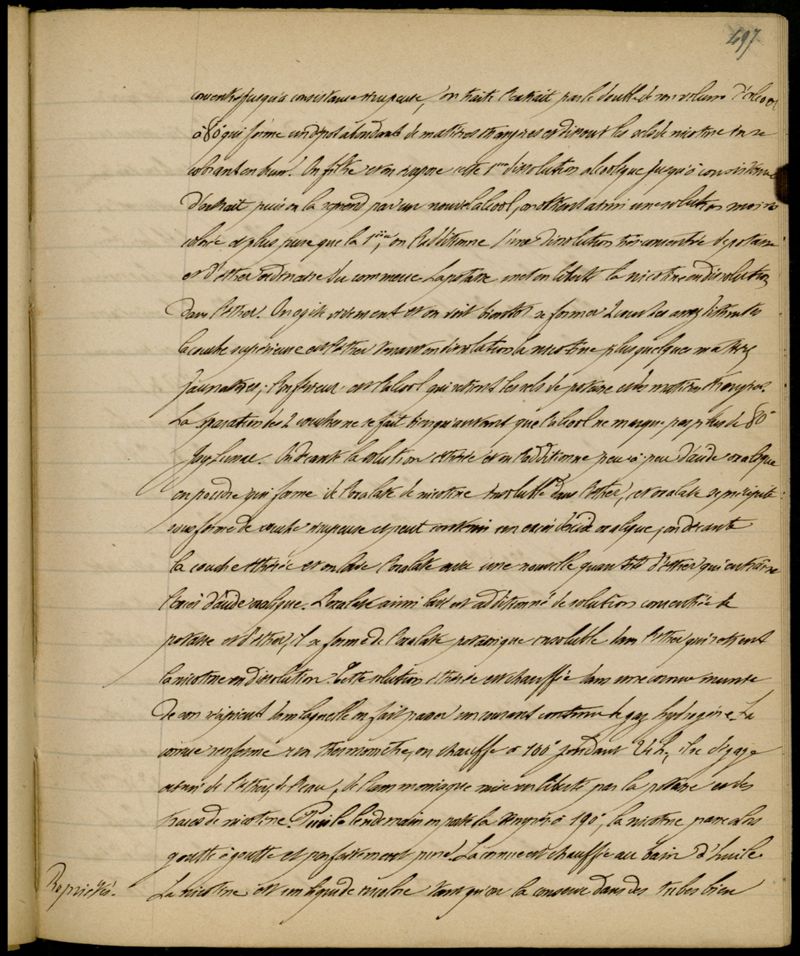 497
concentré jusqu'à consistance sirupeuse, on traite l'extrait par le double de son volume d'alcool
à 80° qui forme un dépôt abondant de matières étrangères et dissout les sels de nicotine en se
colorant en brun. On filtre et on évapore cette 1ère dissolution alcoolique jusqu'à consistance
d'extrait puis on la reprend par un nouvel alcool, on obtient ainsi une solution moins
colorée et plus pure que la 1ère, on l'additionne d'une dissolution très concentrée de potasse
et d'éther ordinaire du commerce. La potasse met en liberté la nicotine en dissolution
dans l'éther. On agite vivement et on voit bientôt se former 2 couches assez distinctes
la couche supérieure est l'éther tenant en dissolution la nicotine plus quelques matières
jaunâtres; l'inférieur est l'alcool qui retient les sels de potasse et les matières étrangères.
La séparation des 2 couches ne se fait bien qu'autant que l'alcool ne marque pas plus de 80°
Gay Lussac. On décante la solution éthérée et on l'additionne peu à peu d'acide oxalique
en poudre qui forme de l'oxalate de nicotine insoluble dans l'éther, cet oxalate se précipite
sous forme de couche sirupeuse et peut contenir un excès d'acide oxalique, on décante
la couche éthérée et on lave l'oxalate avec une nouvelle quantité d'éther qui entraîne
l'excès d'acide oxalique. L'oxalate ainsi lavé est additionné de solution concentrée de
potasse et d'éther, il se forme de l'oxalate potassique insoluble dans l'éther qui retient
la nicotine en dissolution. Cette solution éthérée est chauffée dans une cornue munie
de son récipient dans laquelle on fait passer un courant continu de gaz hydrogène. La
cornue renferme un thermomètre, on chauffe à 100° pendant 24h, il se dégage
de l'éther, de l'eau, de l'ammoniaque mise en liberté par la potasse et des
traces de nicotine. Puis le lendemain on porte la temp. à 190°, la nicotine passe alors
goutte à goutte et parfaitement pure. La cornue est chauffée au bain d'huile
Propriétés. La nicotine est un liquide incolore tant qu'on la conserve dans des tubes bien